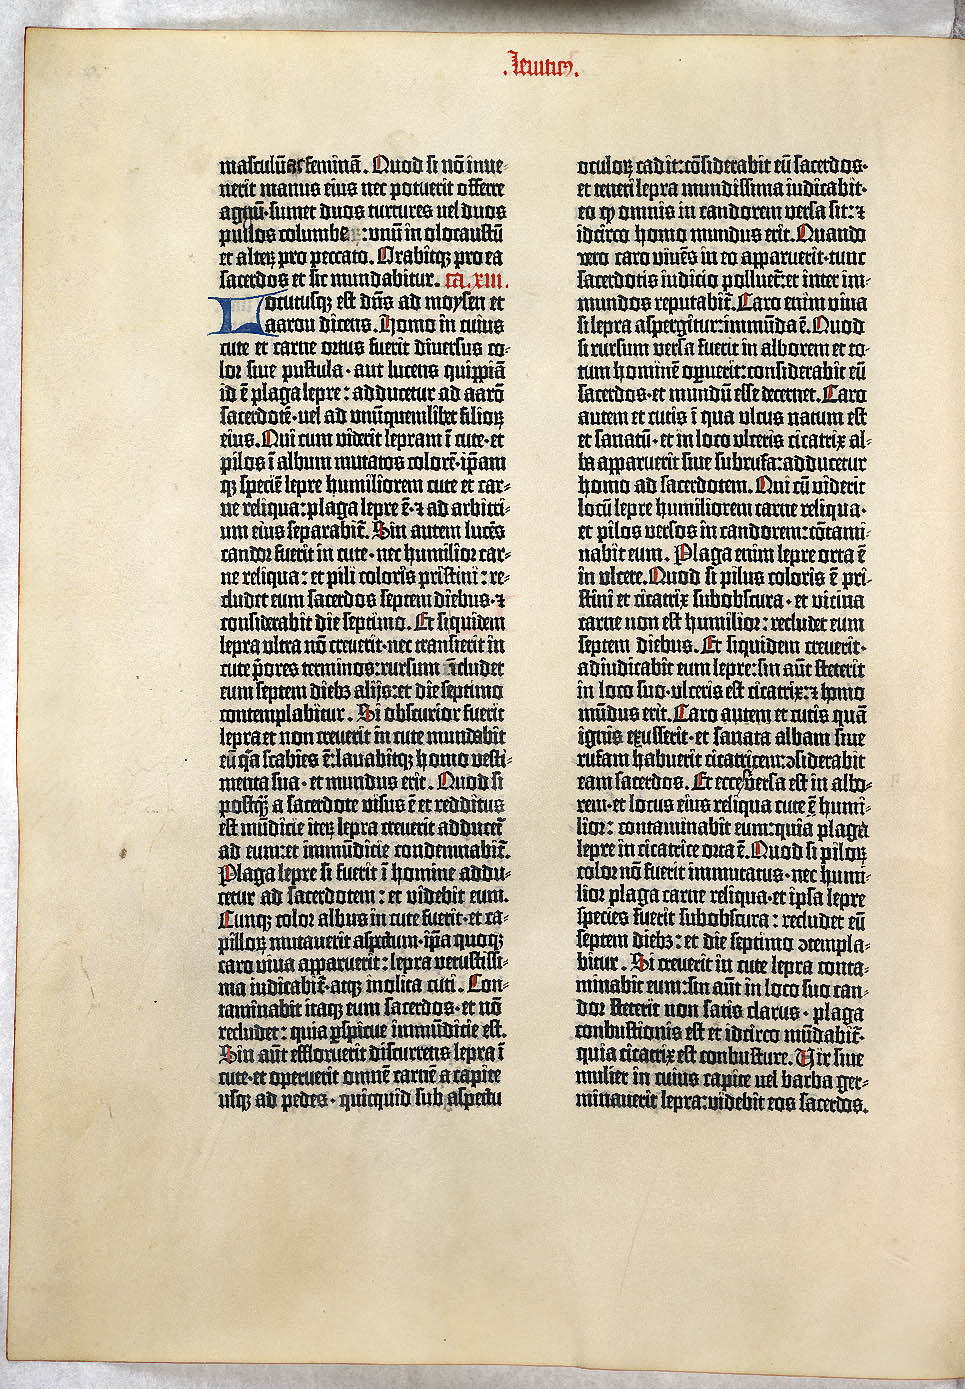 .leuitic9.
masculū ac feminā. Quod si nō inue-
nerit manus eius nec potuerit offerre
agnū·sumet duos turtures uel duos
pullos columbe:unū in olocaustū
et alterꝝ pro peccato. Orabitqꝫ pro ea
sacerdos et sic mundabitur. ca. xiii.
Locutusqꝫ est dn̄s ad moysen et
aaron dicens. Homo in cuius
cute et carne ortus fuerit diuersus co-
lor siue pustula·aut lucens quippiā
id ē plaga lepre: adducetur ad aarō
sacerdotē·uel ad vnūquemlibet filioꝝ
eius. Qui cum viderit lepram ī cute·et
pilos ī album mutatos colorē·ip̄am
qꝫ speciē lepre humiliorem cute et car-
ne reliqua:plaga lepre ē·⁊ ad arbitri-
um eius separabit̄. Sin autem lucēs
candor fuerit in cute·nec humilior car-
ne reliqua: et pili coloris pristini: re-
cludet eum sacerdos septem diebus·⁊
considerabit die septimo. Et siquidem
lepra vltra nō creuerit·nec transierit in
cute p̄ores terminos:rursum īcludet
eum septem diebꝫ alijs:et die septimo
contemplabitur. Si obscurior fuerit
lepra et non creuerit in cute mundabit
eū q̄a scabies ē:lauabitqꝫ homo vesti-
menta sua·et mundus erit. Quod si
postq̄ȝ a sacerdote visus ē et redditus
est mūdicie iteꝝ lepra creuerit adducet̄
ad eum:et immūdicie condemnabit̄.
Plaga lepre si fuerit ī homine addu-
cetur ad sacerdotem: et videbit eum.
Cunqꝫ color albus in cute fuerit·et ca-
pilloꝝ mutauerit aspectum·ip̄a quoqꝫ
caro viua apparuerit: lepra vetustissi-
ma iudicabit̄·atqꝫ inolita cuti. Con-
taminabit itaqꝫ eum sacerdos·et nō
recludet: quia ꝑspicue immūdicie est.
Sin aūt effloruerit discurrens lepra ī
cute·et operuerit omnē carnē a capite
usqꝫ ad pedes·quicquid sub aspectu
oculoꝝ cadit:cōsiderabit eū sacerdos·
et teneri lepra mundissima iudicabit·
eo ꝙ omnis in candorem versa sit:⁊
idcirco homo mundus erit. Quando
vero caro viuēs in eo apparuerit·tunc
sacerdotis iudicio polluet̄:et inter im-
mundos reputabit̄. Caro enim viua
si lepra aspergitur:immūda ē. Quod
si rursum versa fuerit in alborem et to-
tum hominē opuerit:considerabit eū
sacerdos·et mundū esse decernet. Caro
autem et cutis ī qua vlcus natum est
et sanatū·et in loco vlceris cicatrix al-
ba apparuerit siue subrufa:adducetur
homo ad sacerdotem. Qui cū viderit
locū lepre humiliorem carne reliqua·
et pilos versos in candorem: cōtami-
nabit eum. Plaga enim lepre orta ē
in vlcere. Quod si pilus coloris ē pri-
stini et cicatrix subobscura·et vicina
carne non est humilior: recludet eum
septem diebus. Et siquidem creuerit·
adiudicabit eum lepre:sin aūt steterit
in loco suo·vlceris est cicatrix:⁊ homo
mūdus erit. Caro autem et cutis quā
ignis exusserit·et sanata albam siue
rufam habuerit cicatricem:ↄsiderabit
eam sacerdos. Et ecce versa est in albo-
rem·et locus eius reliqua cute ē humi-
lior: contaminabit eum:quia plaga
lepre in cicatrice orta ē. Quod si piloꝝ
color nō fuerit immutatus·nec humi-
lior plaga carne reliqua·et ipsa lepre
species fuerit subobscura: recludet eū
septem diebꝫ: et die septimo ↄtempla-
bitur. Si creuerit in cute lepra conta-
minabit eum:sin aūt in loco suo can-
dor steterit non satis clarus·plaga
conbustionis est et idcirco mūdabit̄·
quia cicatrix est conbusture. Vir siue
mulier in cuius capite uel barba ger-
minauerit lepra:videbit eos sacerdos.